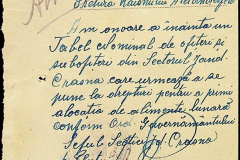 Am onoare a inainta un
Tabel Nominal de ofiteri si
subofiteri din Sectorul Jand.
Crasna care urmează a se
pune la drepturi pentru a primi
alocatia de alimente lunară
conform Ord. Guvernământului
Seful Sectorului Jd. Crasna